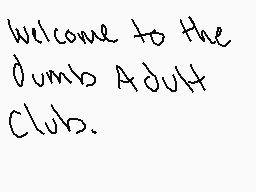 Welcome to the
Dumb Adult
Club.